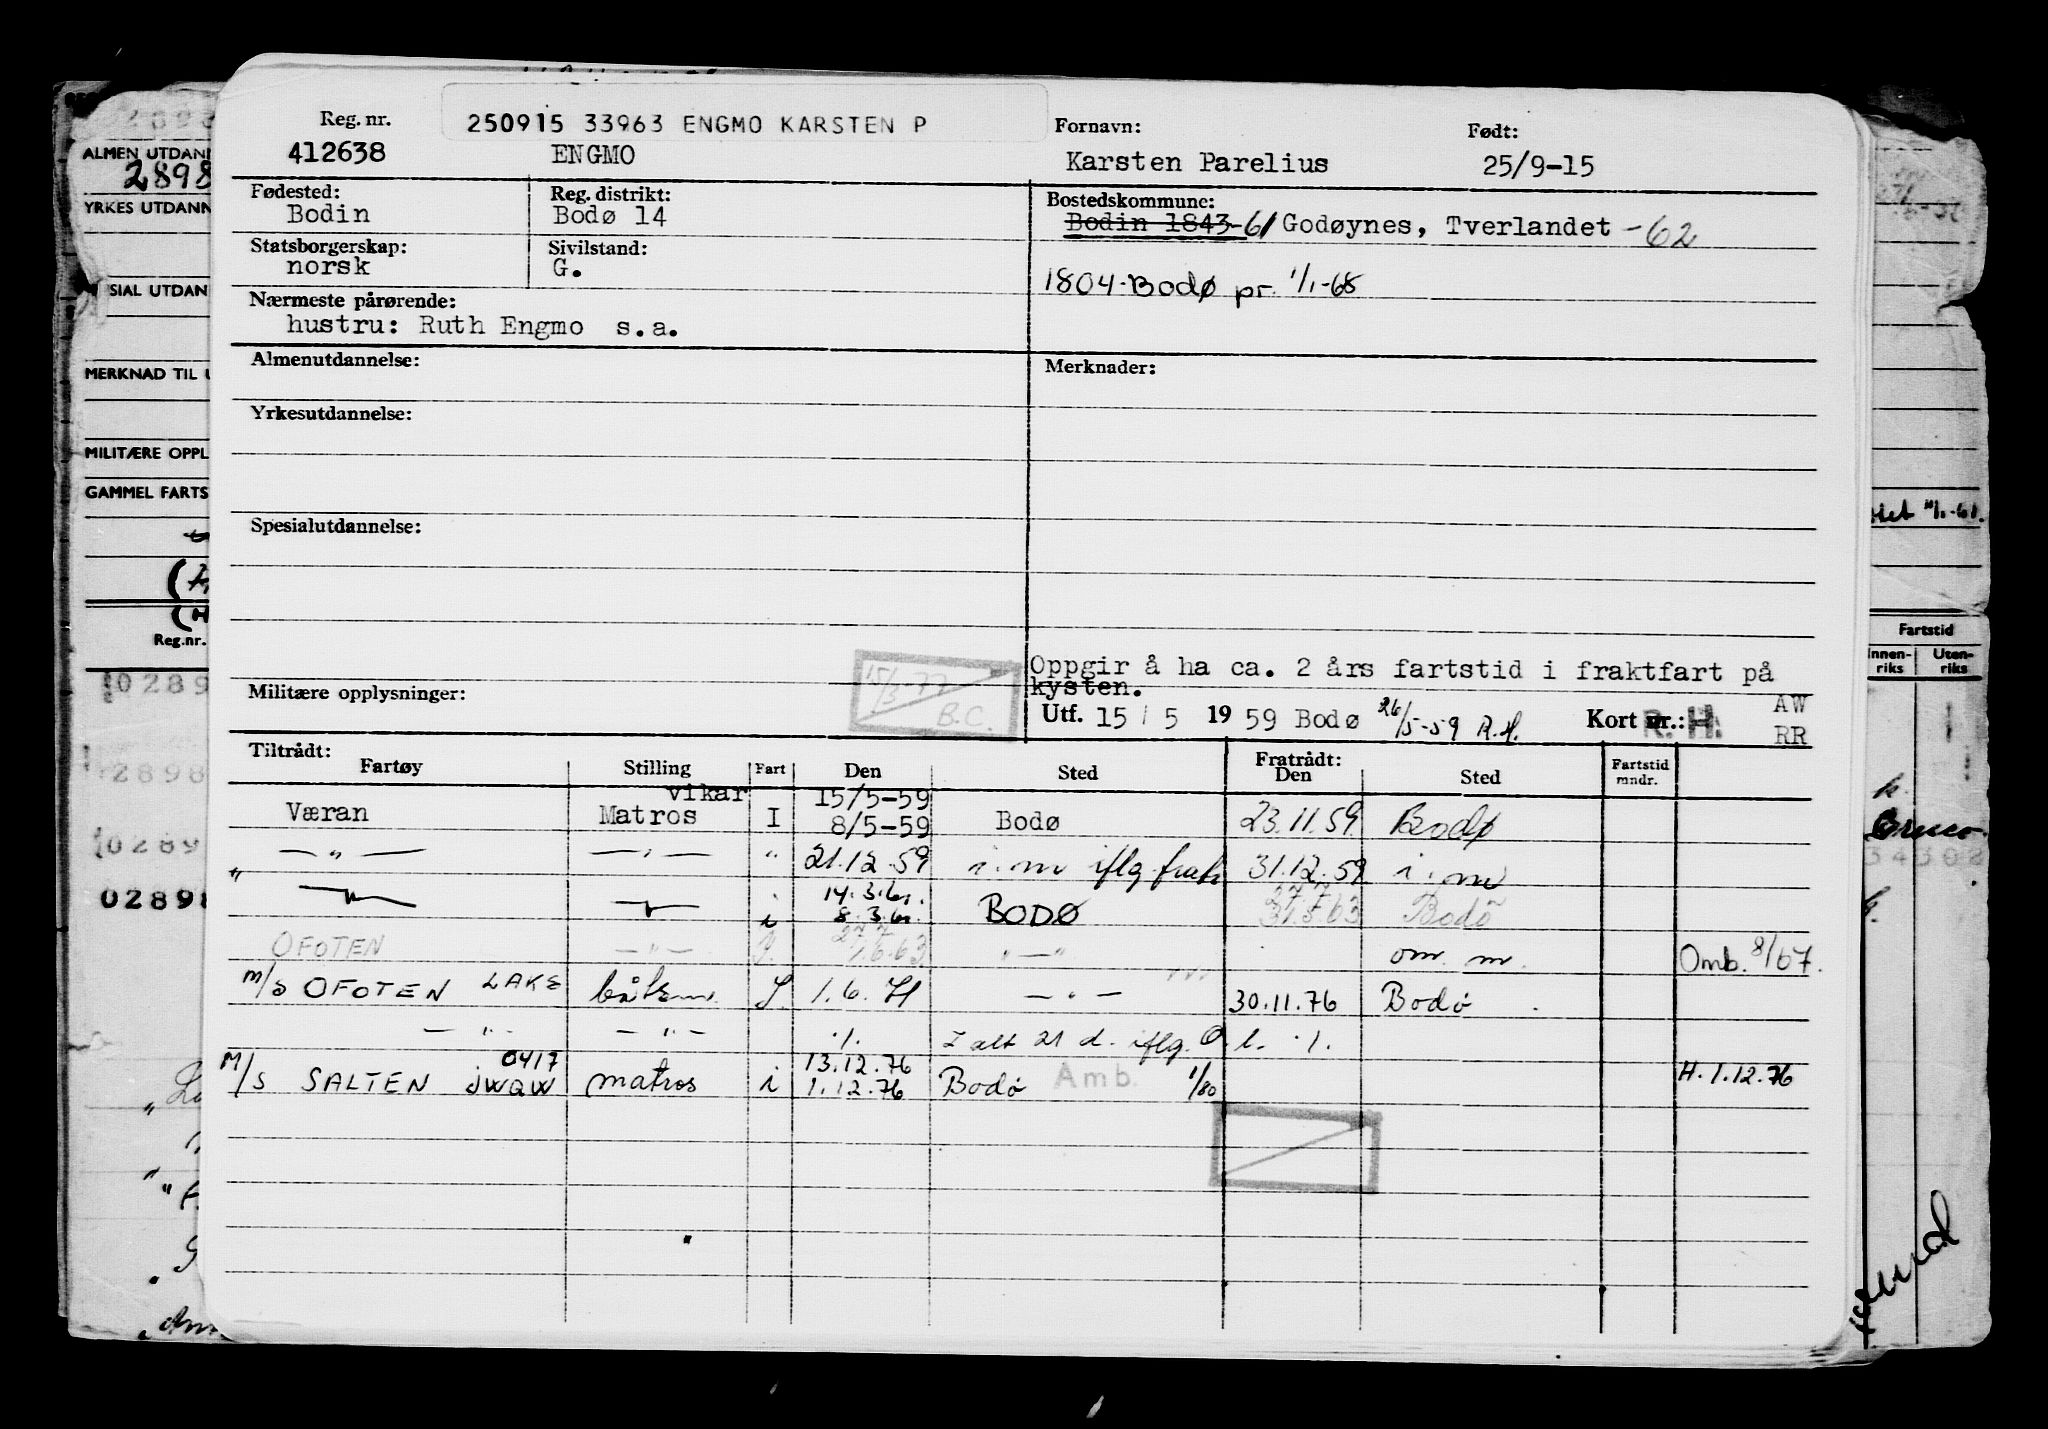 Reg. nr.
412638
250915 33963 ENGMO KARSTEN P
ENGMO
Fornavn:
Karsten Parelius
Født:
25/9-15
Fødested:
Bodin
Reg. distrikt:
Bodø 14
Bostedskommune:
Bodin 1843-61 Godøynes, Tverlandet -62
Statsborgerskap:
norsk
Sivilstand:
G.
1804-Bodø pr. 1/1-68
Nærmeste pårørende:
hustru: Ruth Engmo s.a.
Almenutdannelse:
Merknader:
Yrkesutdannelse:
Spesialutdannelse:
Oppgir å ha ca. 2 års fartstid i fraktfart på
kysten.
Militære opplysninger:
15/3-77
B.C.
Utf. 15 / 5 1959 Bodø 26/5-59 R.H.
Kort nr.: H
R. H.
AW
RR
Tiltrådt:
Fartøy Stilling Fart Den Sted
Fratrådt:
Den Sted
Fartstid
mndr.
vikar 15/5-59
Væran Matros I 8/5-59 Bodø 23.11.59 Bodø
— " — — " — " 21.12.59 i.m iflg. fratr 31.12.59 i.m
14.3.61.
— " — — " — i 8.3.61. BODØ 31.5.63 Bodø
27.7
OFOTEN — " — I. 1.6.63 " — " om. m. Omb. 8/67.
M/S OFOTEN LAKE båtsm. I. 1.6.71 — " — 30.11.76 Bodø
— " — — " — ./. I alt 21 d. iflg. O.l. ./.
M/S SALTEN 0417 JWQW matros i 13.12.76
1.12.76 Bodø Amb. 1/80 H. 1.12.76
ALMEN UTDAN
2898
YRKES UTDANN
SIAL UTDAN
MERKNAD TIL U
MILITÆRE OPPL
GAMMEL FARTS
Reg.nr.
0289
2898
0289
02898
Fartstid
Innen-
riks
Uten-
riks
34308